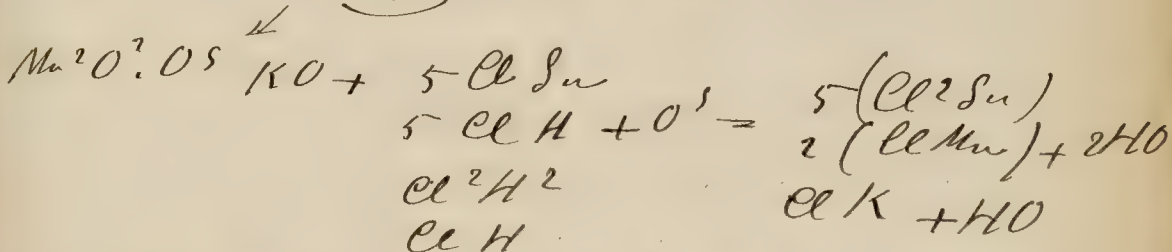 Mn²O². O⁵ KO + 5 Cl Sn
5 Cl H + O⁵ = 5 (Cl² Sn)
Cl² H² 2 (Cl Mn) + 2HO
Cl H Cl K + HO